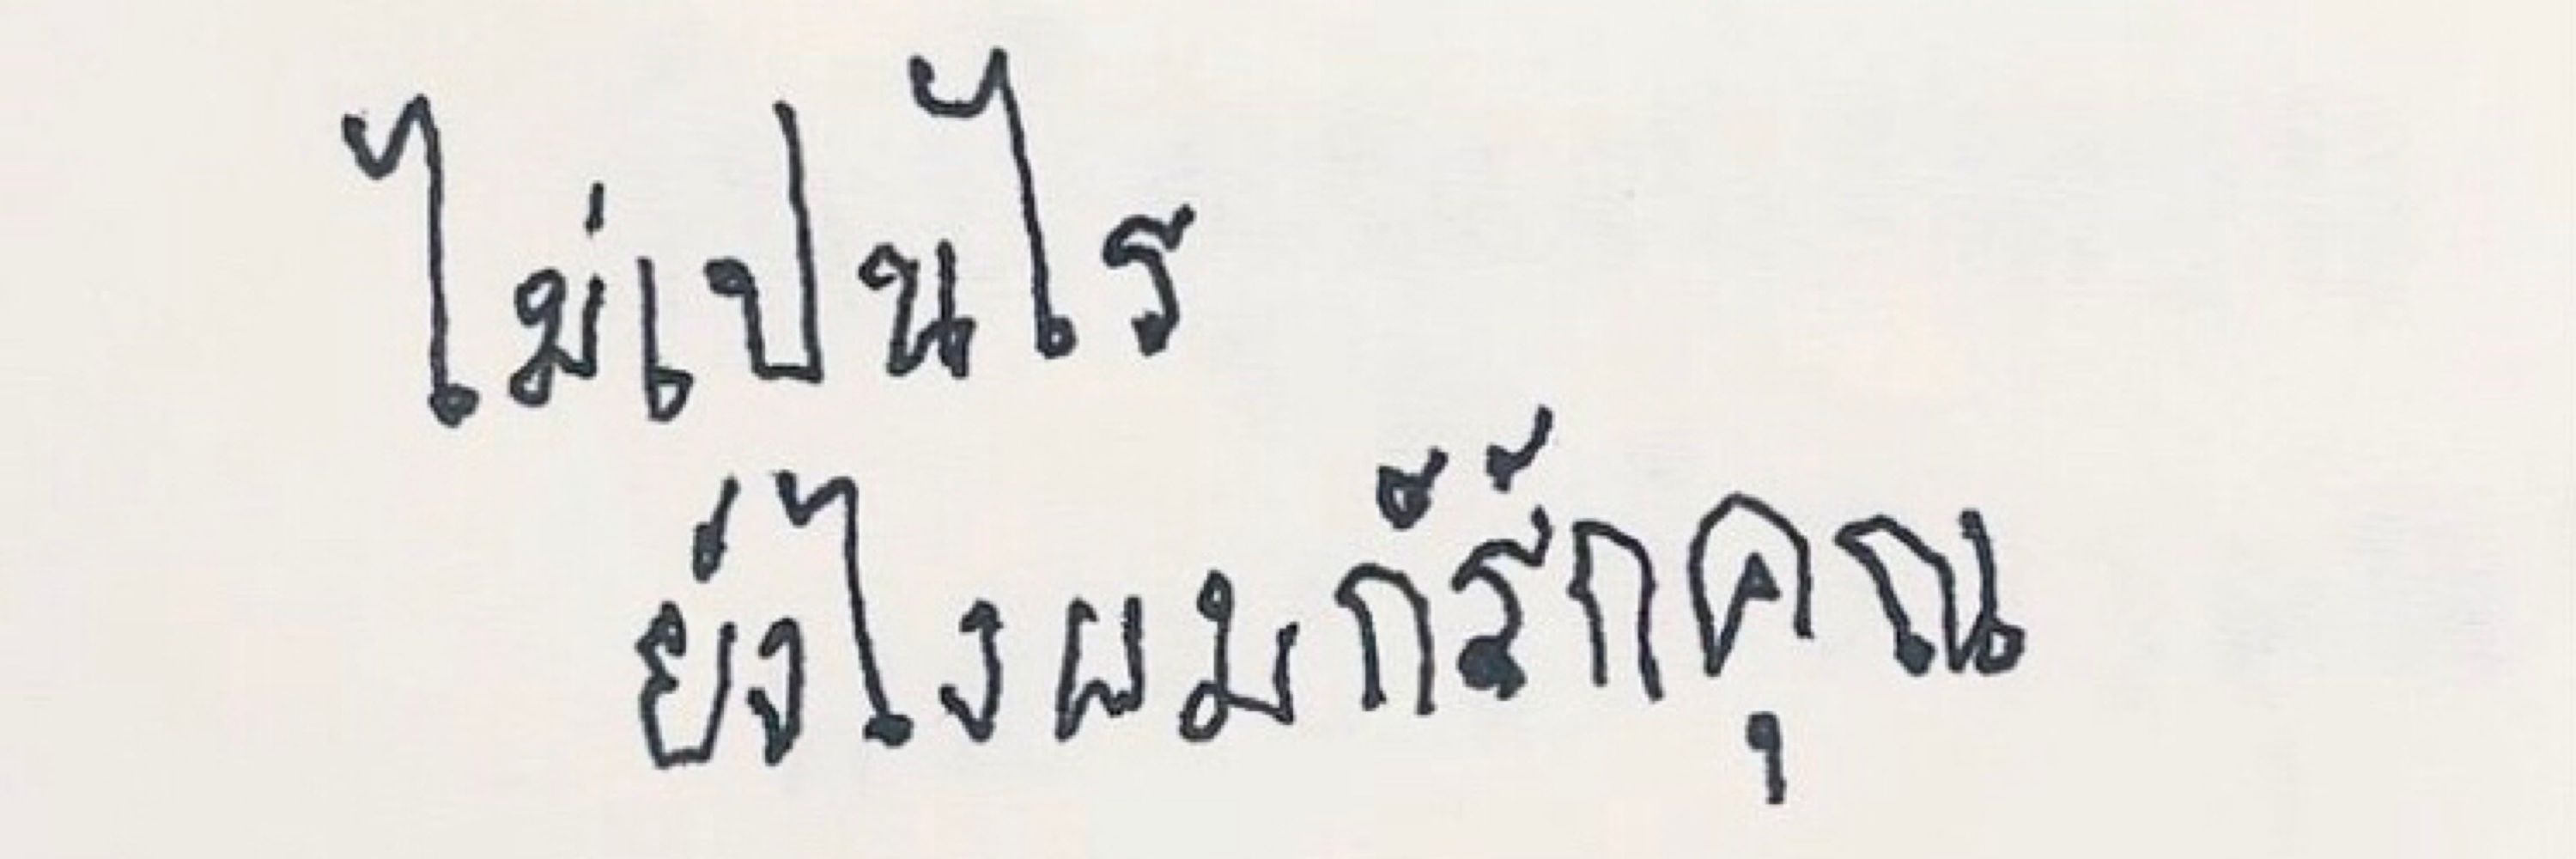 ไม่เปนไร
ยังไงผมก็รักคุณ